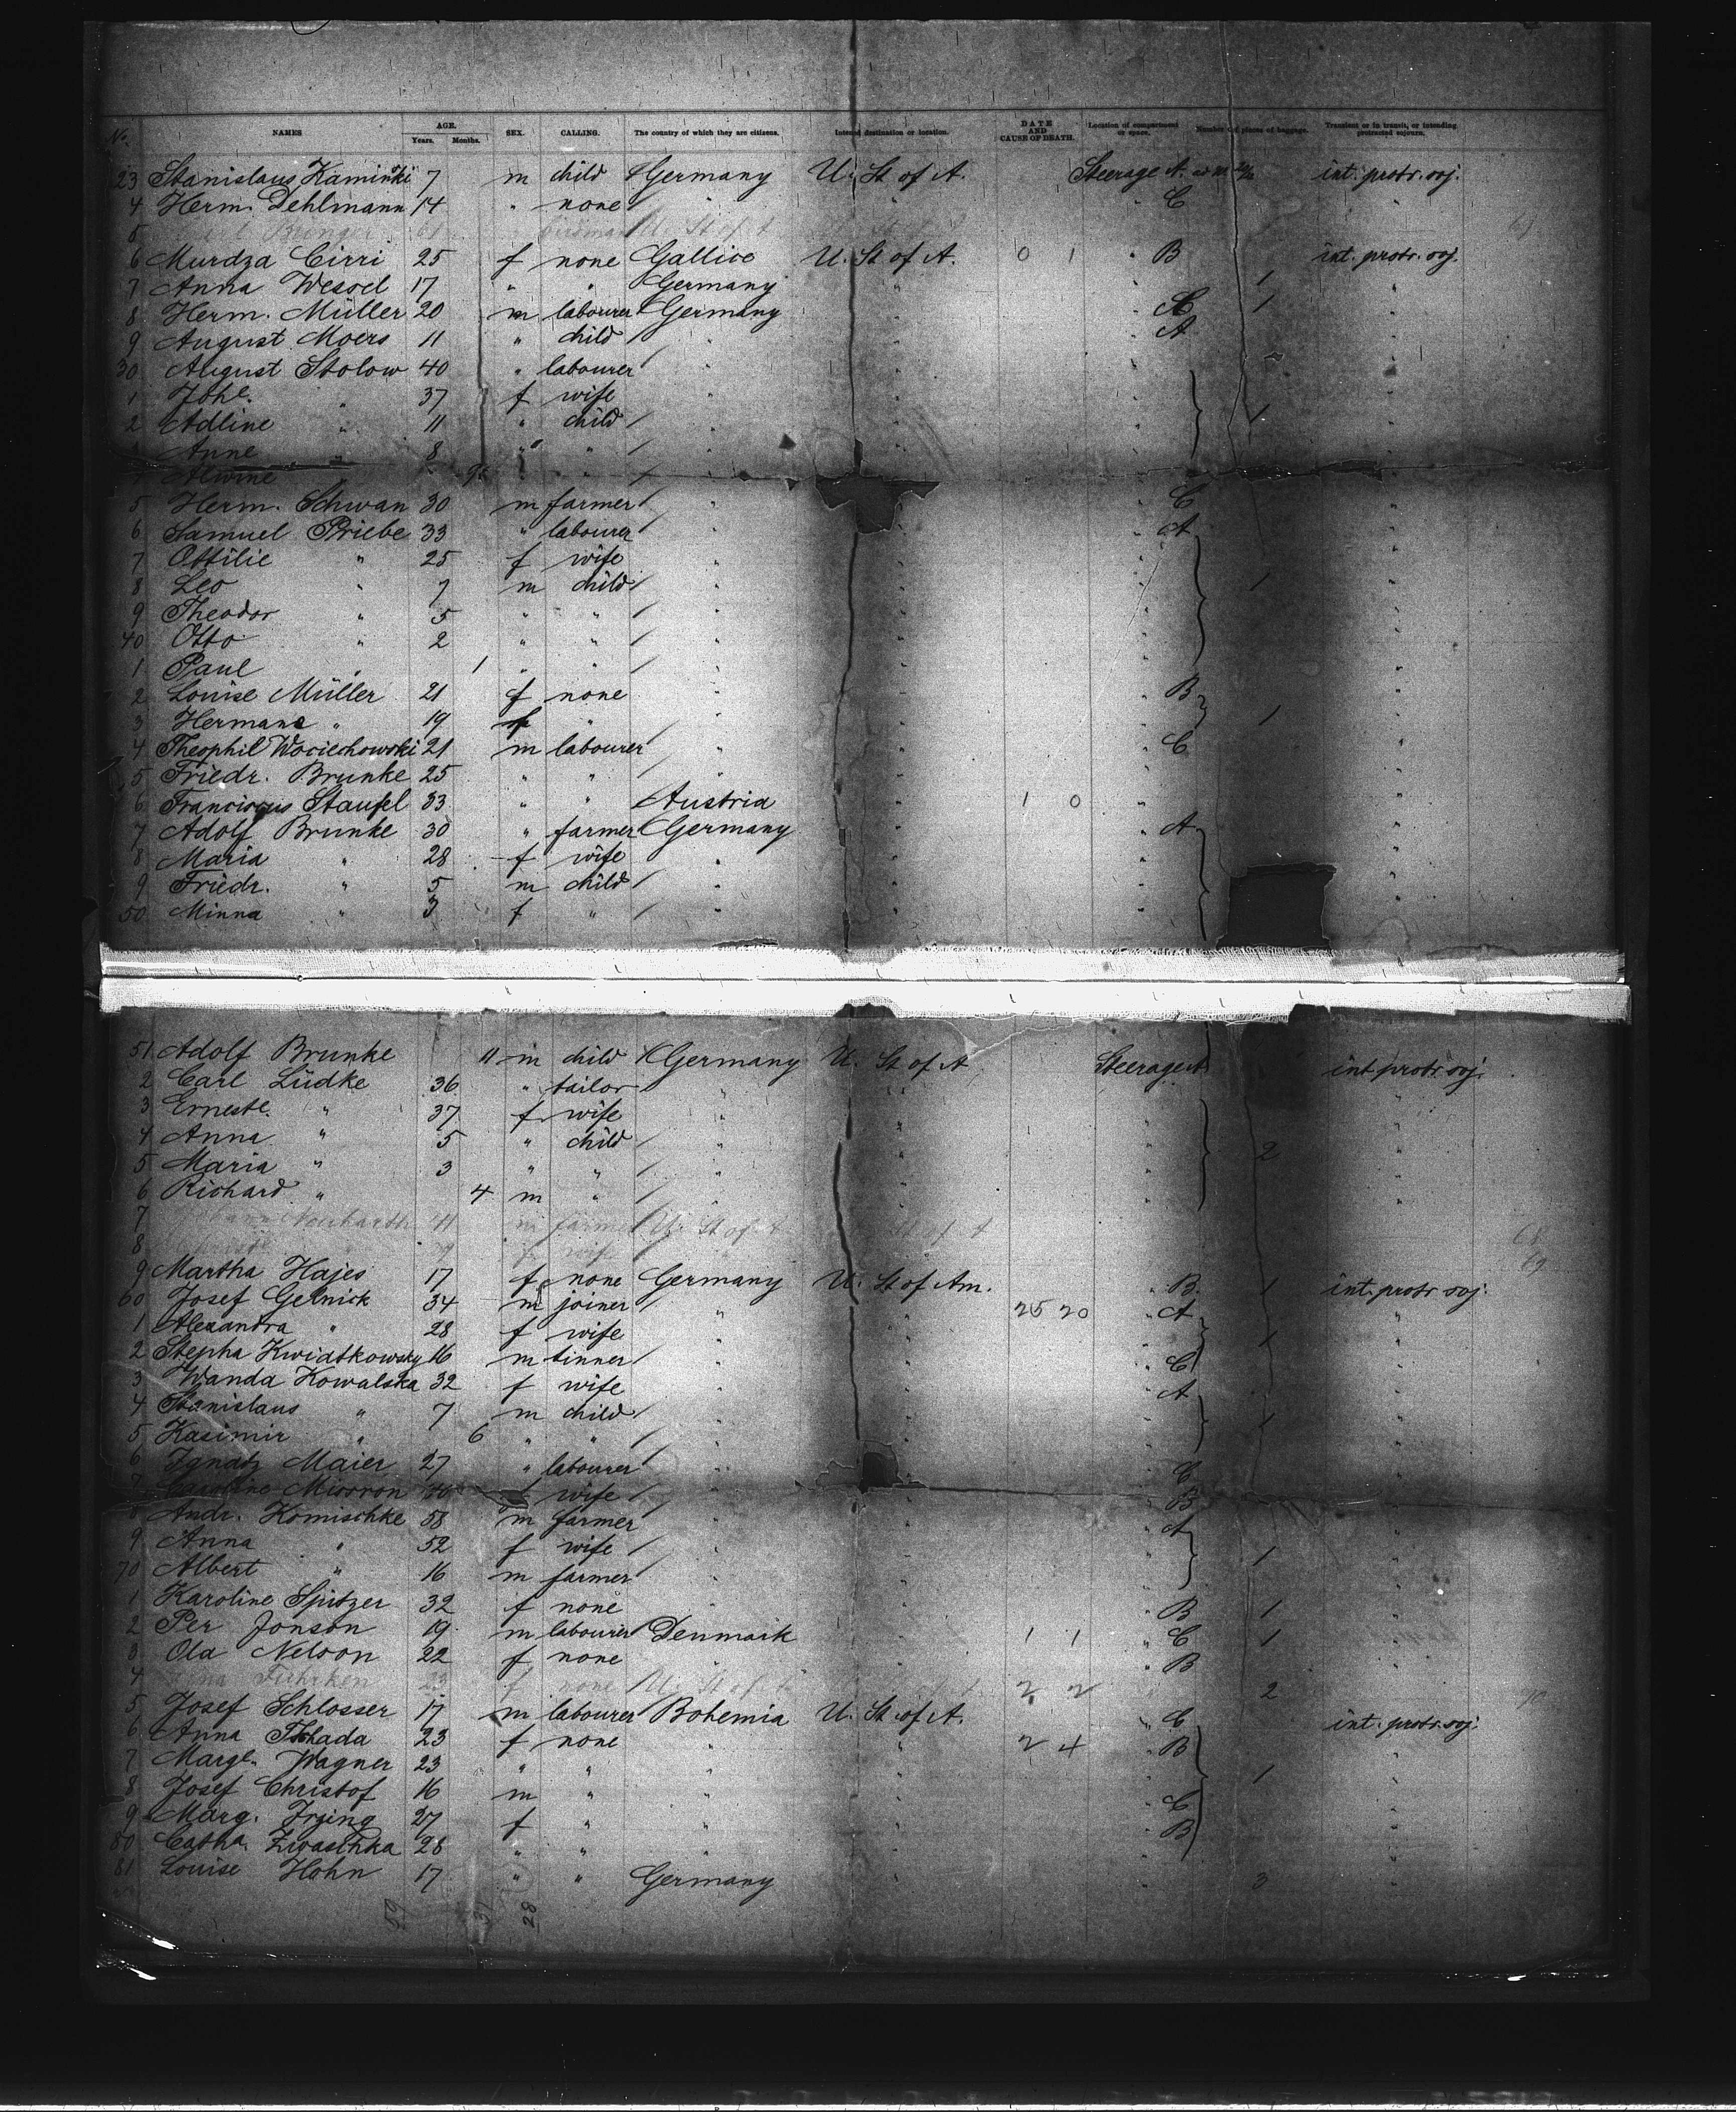 No. NAMES AGE. Years. Months. SEX. CALLING. The country of which they are citizens. Intend destination or location. DATE AND CAUSE OF DEATH. Location of compartment or space. Number of pieces of baggage. Transient or in transit, or intending protracted sojourn.
23 Stanislaus Kaminski 7 m child Germany U. St of A. Steerage A. int. protr. soj.
4 Herm. Dehlmann 14 " none " C "
5 U. St of A
6 Murdza Cirri 25 f none Gallice U. St of A. 0 1 " B int. protr. soj.
7 Anna Wesoel 17 " " Germany " " 1 "
8 Herm. Müller 20 m labourer Germany " " C 1 "
9 August Moers 11 " child " " " A "
30 August Stolow 40 " labourer " " " "
1 Johe. " 37 f wife " " " "
2 Adline " 11 " child " " " 1 "
3 Anne " 8 " " " " " "
4 Alwine " " " "
5 Herm. Schwan 30 m farmer " " " C "
6 Samuel Priebe 33 " labourer " " " A "
7 Ottilie " 25 f wife " " " "
8 Leo " 7 m child " " " 1 "
9 Theodor " 5 " " " " " "
40 Otto " 2 " " " " " "
1 Paul " 1 " " " " " "
2 Louise Müller 21 f none " " " B "
3 Hermane " 19 f " " " " 1 "
4 Theophil Wociechowski 21 m labourer " " " C "
5 Friedr. Brunke 25 " " " " " "
6 Franciscus Staufel 33 " " Austria " 1 0 " "
7 Adolf Brunke 30 " farmer Germany " " A "
8 Maria " 28 f wife " " " "
9 Friedr. " 5 m child " " " "
50 Minna " 3 f " " " " "
51 Adolf Brunke 11 m child Germany U. St of A Steerage A int protr soj.
2 Carl Lüdke 36 " tailor " " " "
3 Ernestl. " 37 f wife " " " "
4 Anna " 5 " child " " " 2 "
5 Maria " 3 " " " " " "
6 Richard " 4 m " " " " "
7 41 m farmer U. St of A St of A 68
8 f wife 69
9 Martha Hajes 17 f none Germany U. St of Am. " B. 1 int. protr soj.
60 Josef Gelnick 34 m joiner " " 25 20 " A "
1 Alexandra " 28 f wife " " " 1 "
2 Stepha Kwiatkowsky 16 m tinner " " " C "
3 Wanda Kowalska 32 f wife " " " A "
4 Stanislaus " 7 m child " " " 1 "
5 Kasimir " 6 " " " " " "
6 Ignatz Maier 27 " labourer " " " C "
7 Caroline wife " " " B "
8 Andr. Komischke 58 m farmer " " " A "
9 Anna " 52 f wife " " " 1 "
70 Albert " 16 m farmer " " " "
1 Karoline Spitzer 32 f none " " " B 1 "
2 Per Jonson 19 m labourer Denmark " 1 1 " C 1 "
3 Ola Nelson 22 f none " " " B "
4 23 f none U. St of A 2 2 " 2 70
5 Josef Schlosser 17 m labourer Bohemia U. St of A. " C int. protr. soj.
6 Anna 23 f none " " 2 4 " B "
7 Margt. Wagner 23 " " " " " 1 "
8 Josef Christof 16 m " " " " C "
9 Marg. 27 f " " " " B "
80 Catha. Zwaschka 28 " " " " " "
81 Louise Hahn 17 " " Germany " " 3 "
59 31 28